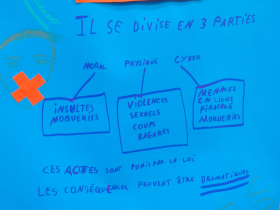 IL SE DIVISE EN 3 PARTIES
MORAL PHYSIQUE CYBER
INSULTES
MOQUERIES
VIOLENCES
SEXUELS
COUPS
BAGARES
MENACES
EN LIGNE
PIRATAGE
MOQUERIES
CES ACTES SONT PUNIS PAR LA LOI
LES CONSÉQUENCES PEUVENT ÊTRE DRAMATIQUES